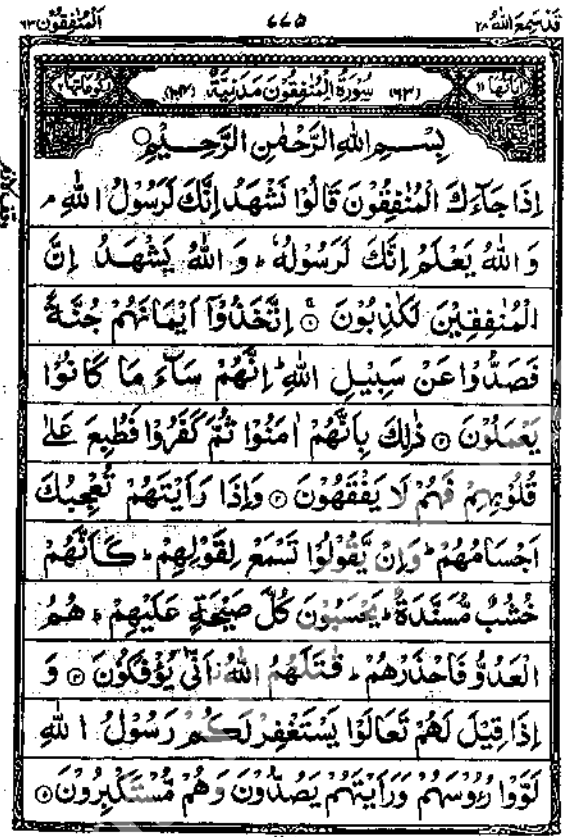 قَدْسَمِعَ اللّٰهُ ٢٨
٦٦٥
اَلْمُنٰفِقُوْن ٦٣
اٰيَاتُهَا ١١
(٦٣) سُوْرَةُ الْمُنٰفِقُوْنَ مَدَنِيَّةٌ (١٠٤)
رُكُوْعَاتُهَا ٢
بِسْمِ اللّٰهِ الرَّحْمٰنِ الرَّحِيْمِ
اِذَا جَآءَكَ الْمُنٰفِقُوْنَ قَالُوْا نَشْهَدُ اِنَّكَ لَرَسُوْلُ اللّٰهِ ۘ
وَ اللّٰهُ يَعْلَمُ اِنَّكَ لَرَسُوْلُهٗ ؕ وَ اللّٰهُ يَشْهَدُ اِنَّ
الْمُنٰفِقِيْنَ لَكٰذِبُوْنَ ۚ ﴿١﴾ اِتَّخَذُوْۤا اَيْمَانَهُمْ جُنَّةً
فَصَدُّوْا عَنْ سَبِيْلِ اللّٰهِ ؕ اِنَّهُمْ سَآءَ مَا كَانُوْا
يَعْمَلُوْنَ ﴿٢﴾ ذٰلِكَ بِاَنَّهُمْ اٰمَنُوْا ثُمَّ كَفَرُوْا فَطُبِعَ عَلٰى
قُلُوْبِهِمْ فَهُمْ لَا يَفْقَهُوْنَ ﴿٣﴾ وَاِذَا رَاَيْتَهُمْ تُعْجِبُكَ
اَجْسَامُهُمْ ؕ وَاِنْ يَّقُوْلُوْا تَسْمَعْ لِقَوْلِهِمْ ؕ كَاَنَّهُمْ
خُشُبٌ مُّسَنَّدَةٌ ؕ يَحْسَبُوْنَ كُلَّ صَيْحَةٍ عَلَيْهِمْ ؕ هُمُ
الْعَدُوُّ فَاحْذَرْهُمْ ؕ قٰتَلَهُمُ اللّٰهُ ؗ اَنّٰى يُؤْفَكُوْنَ ﴿٤﴾ وَ
اِذَا قِيْلَ لَهُمْ تَعَالَوْا يَسْتَغْفِرْ لَكُمْ رَسُوْلُ اللّٰهِ
لَوَّوْا رُءُوْسَهُمْ وَرَاَيْتَهُمْ يَصُدُّوْنَ وَهُمْ مُّسْتَكْبِرُوْنَ ﴿٥﴾